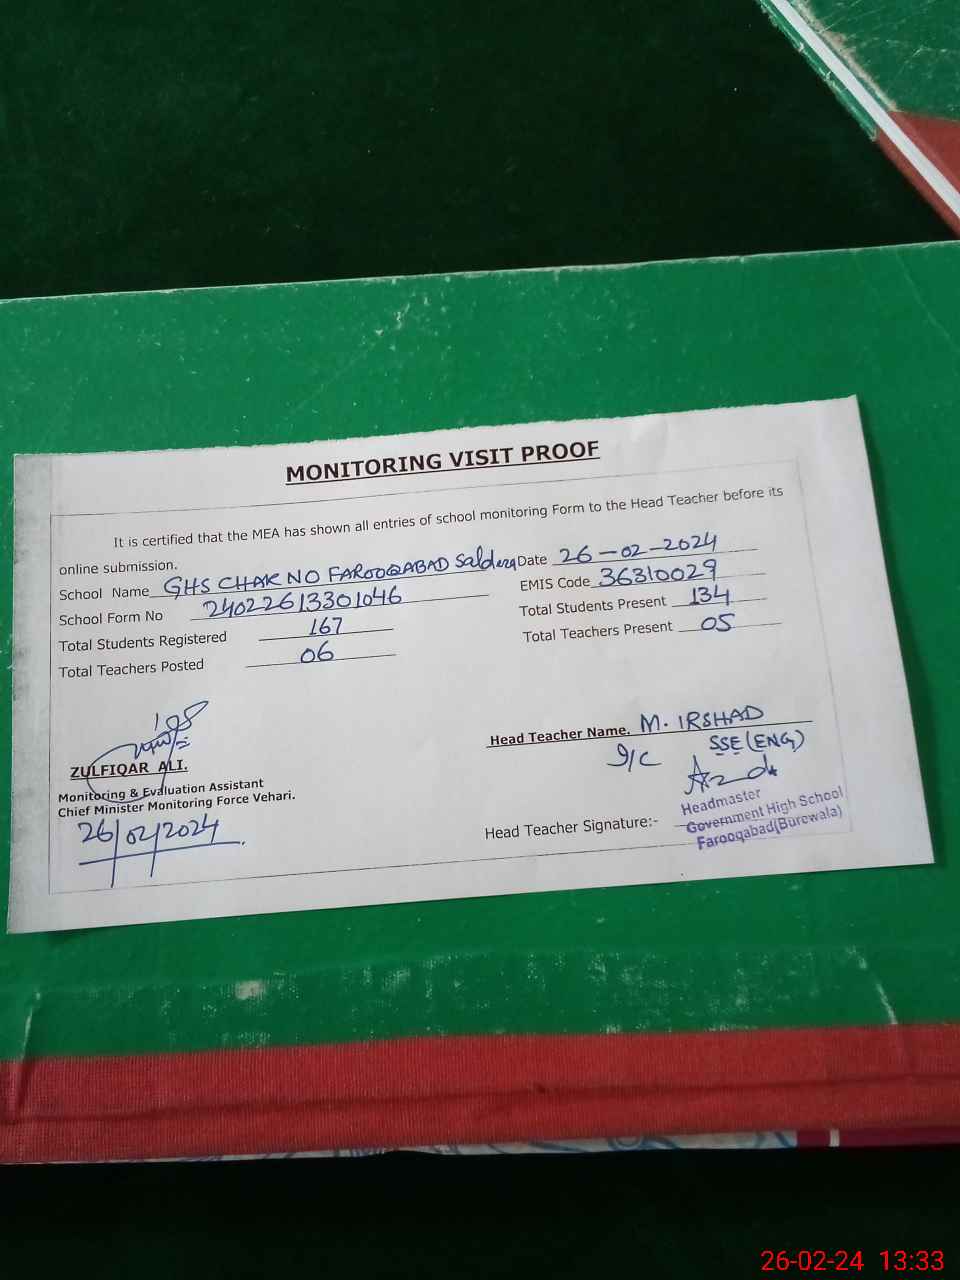 MONITORING VISIT PROOF
It is certified that the MEA has shown all entries of school monitoring Form to the Head Teacher before its
online submission.
School Name GHS CHAK NO FAROOQABAD Saldera Date 26-02-2024
School Form No 24022613301046 EMIS Code 36310029
Total Students Registered 167 Total Students Present 134
Total Teachers Posted 06 Total Teachers Present 05
ZULFIQAR ALI.
Monitoring & Evaluation Assistant
Chief Minister Monitoring Force Vehari.
26/02/2024
Head Teacher Name. M. IRSHAD
I/C SSE (ENG)
Head Teacher Signature:-
Headmaster
Government High School
Farooqabad(Burewala)
26-02-24 13:33